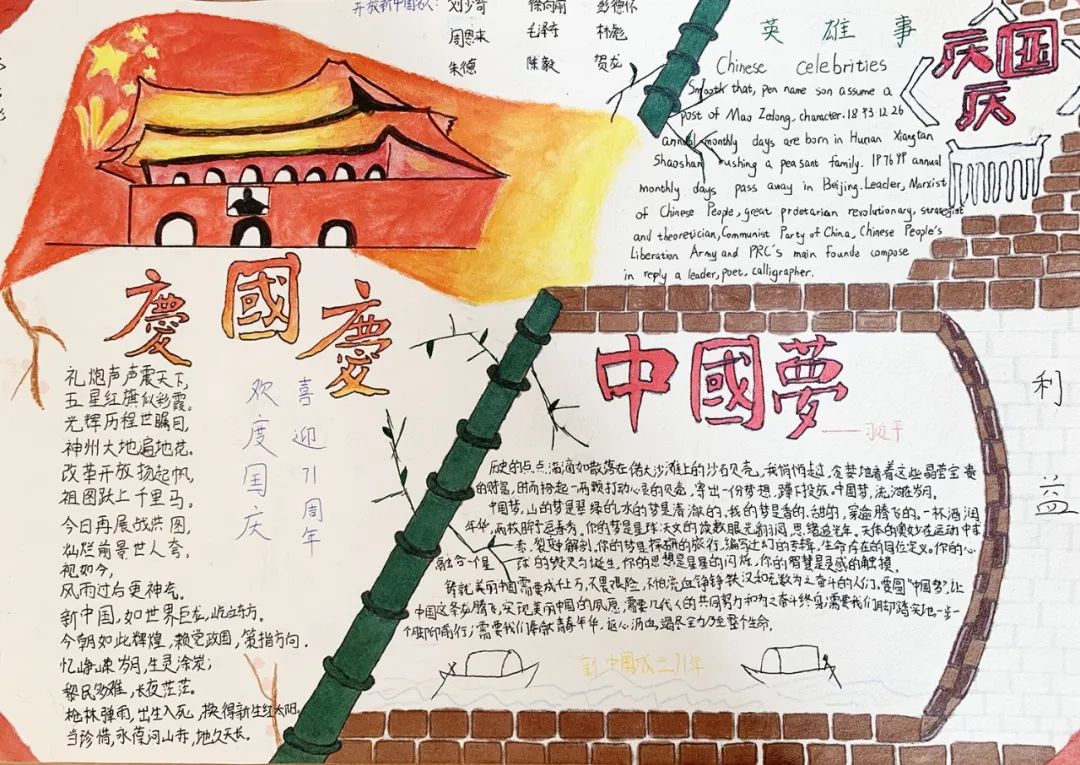 开放新中国名人：
刘少奇 徐向前 彭德怀
周恩来 毛泽东 林彪
朱德 陈毅 贺龙
英雄事
Chinese celebrities
Smooth that, pen name son assume a
post of Mao Zedong, character. 18 93 12 26
annual monthly days are born in Hunan Xiangtan
Shaoshan rushing a peasant family. 1976 99 annual
monthly days pass away in Beijing. Leader, Marxist
of Chinese People, great prdetarian revolutionary, strategist
and theoretician, Communist Party of China, Chinese People's
Liberation Army and PRC's main founde compose
in reply a leader, poet, calligrapher.
庆国
庆
慶國慶
礼炮声声震天下，
五星红旗似彩霞。
光辉历程世瞩目，
神州大地遍地花。
改革开放扬起帆，
祖国跃上千里马。
今日再展战洪图，
灿烂前景世人夸，
视如今，
风雨过后更神气。
新中国，如世界巨龙，屹立东方。
今朝如此辉煌，赖党政团，策指方向。
忆峥嵘岁月，生灵涂炭；
黎民多难，长夜茫茫。
枪林弹雨，出生入死，换得新生红太阳。
当珍惜，永葆河山寿，地久天长。
喜迎71周年
欢度国庆
中國夢
历史的点点海滴如散落在偌大沙滩上的沙石贝壳，我俯身走过，贪婪地看着这些晶莹宝贵
的财富，时而扬起一两颗打动心灵的贝壳，寄出一份梦想，
中国梦，山的梦是翠绿的，水的梦是清澈的，我的梦是香的，甜的，穿越腾飞的。一杯酒
年华，两故 你的梦是星球
融合一个星 你的思想是星星的闪烁，你的智慧是灵感的触摸。
铸就美丽中国需要成千上万，不畏艰险，不怕流血铮铮铁汉和无数为之奋斗的人们，要圆“中国梦”，让
中国这条龙腾飞，实现美丽中国的夙愿，需要几代人的共同努力和为之奋斗终身；需要我们脚踏实地一步一
个脚印前行；需要我们奉献青春年华，沥心滴血，竭尽全力乃至整个生命。
新中国成立71年
利
益